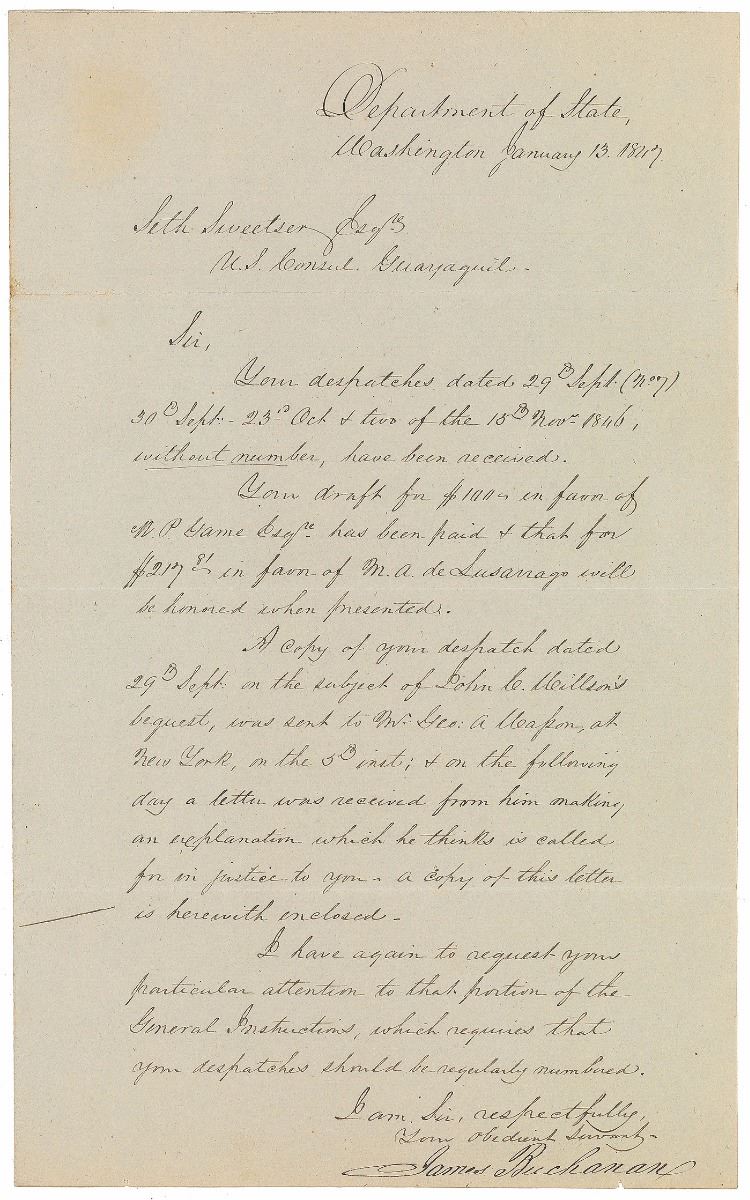 Department of State,
Washington January 13. 1847.
Seth Sweetser Esqre
U.S. Consul. Guayaquil.
Sir,
Your despatches dated 29th Sept. (No 7)
30th Sept. - 23d Oct & two of the 15th Novr 1846,
without number, have been received.
Your draft for $100- in favor of
P. Game Esqre has been paid & that for
$217 in favor of M. A. de Lusarrago will
be honored when presented.
A copy of your despatch dated
29th Sept. on the subject of John C. Willson's
bequest, was sent to Mr Geo: A Wasson, at
New York, on the 5th inst; & on the following
day a letter was received from him making
an explanation which he thinks is called
for in justice to you - a copy of this letter
is herewith enclosed -
I have again to request your
particular attention to that portion of the
General Instructions, which requires that
your despatches should be regularly numbered.
I am Sir, respectfully,
Your obedient servant -
James Buchanan